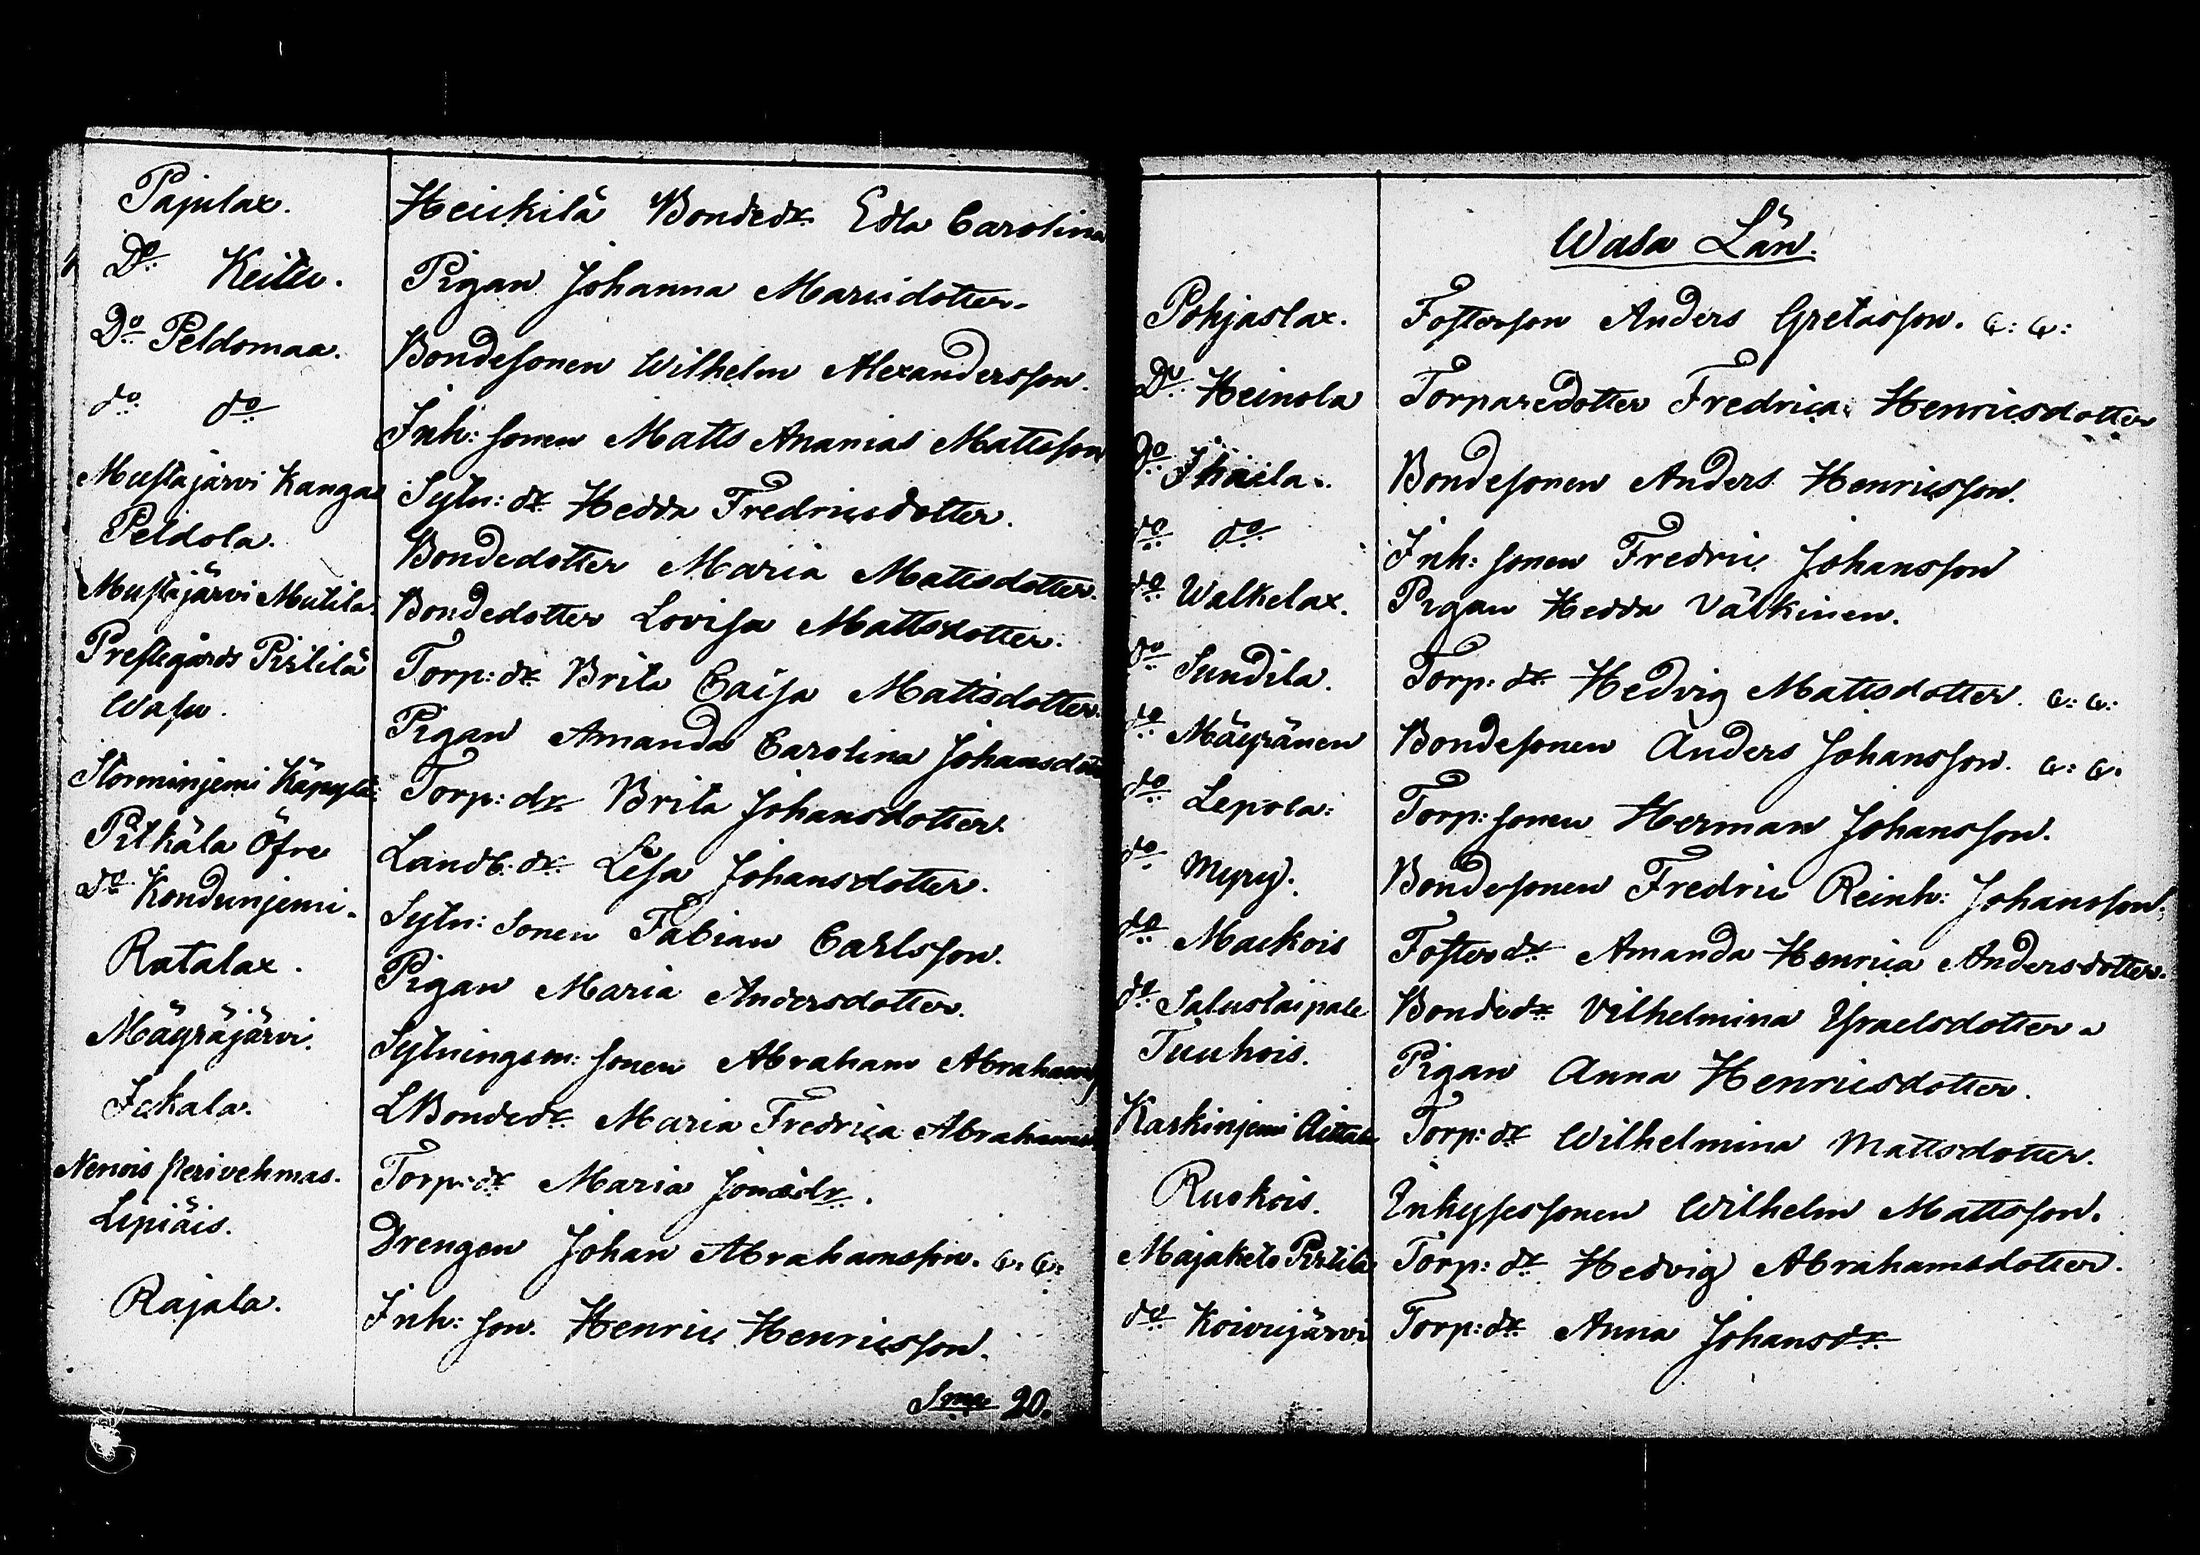 Pajulax. Heickilä Bondedr Edla Carolina
Do: Keitu. Pigan Johanna Mariidotter.
Do Peldomaa. Bondesonen Wilhelm Alexandersson.
do do Inh: sonen Matts Ananias Mattsson
Mustajärvi Kangas Sytn: dr Hedda Fredricsdotter.
Peldola. Bondedotter Maria Mattsdotter.
Mustajärvi Mutila. Bondedotter Lovisa Mattsdotter.
Prestegårds Pirtilä Torp: dr Brita Caisa Mattsdotter.
Wasu. Pigan Amanda Carolina Johansdotter
Storminjemi Käpylä: Torp: dr Brita Johansdotter.
Pitkäla Öfre Landb. dr. Lesa Johansdotter.
do Kondunjemi. Sytn: Sonen Fabian Carlsson.
Ratalax. Pigan Maria Andersdotter.
Mägräjärvi. Sytningsm: sonen Abraham Abrahams
Jokala. LBondedr Maria Fredrica Abrahams
Nenois Perivehmas. Torp: dr Maria Jonædr.
Lepiäis. Drengen Johan Abrahamsson. G. G:
Rajala. Inh: son. Henric Henricsson.
Sma 20.
Wasa Län.
Pohjaslax. Fosterson Anders Gretasson. G: G:
Do: Heinola Torparedotter Fredrica Henricsdotter
do Ihaila. Bondesonen Anders Henricsson.
do do Inh: sonen Fredric Johansson
do Walkelax. Pigan Hedda Välkinen.
do Sundila. Torp: dr Hedvig Mattsdotter. G: G:
do Mägränen Bondesonen Anders Johansson. G: G.
do Lepola: Torp: sonen Herman Johansson.
do Myry. Bondesonen Fredric Reinh: Johansson.
do Mackois Fosterdr Amanda Henrica Andersdotter.
do Salustaipale Bondedr Vilhelmina Ysraelsdotter
Tuuhois. Pigan Anna Henricsdotter.
Karkinjemi Aittala Torp: dr Wilhelmina Mattsdotter.
Ruokois. Inhysessonen Wilhelm Mattsson.
Majaketo Pirtila Torp: dr Hedvig Abrahamsdotter.
do Koivujärvi Torp: dr Anna Johansdr.